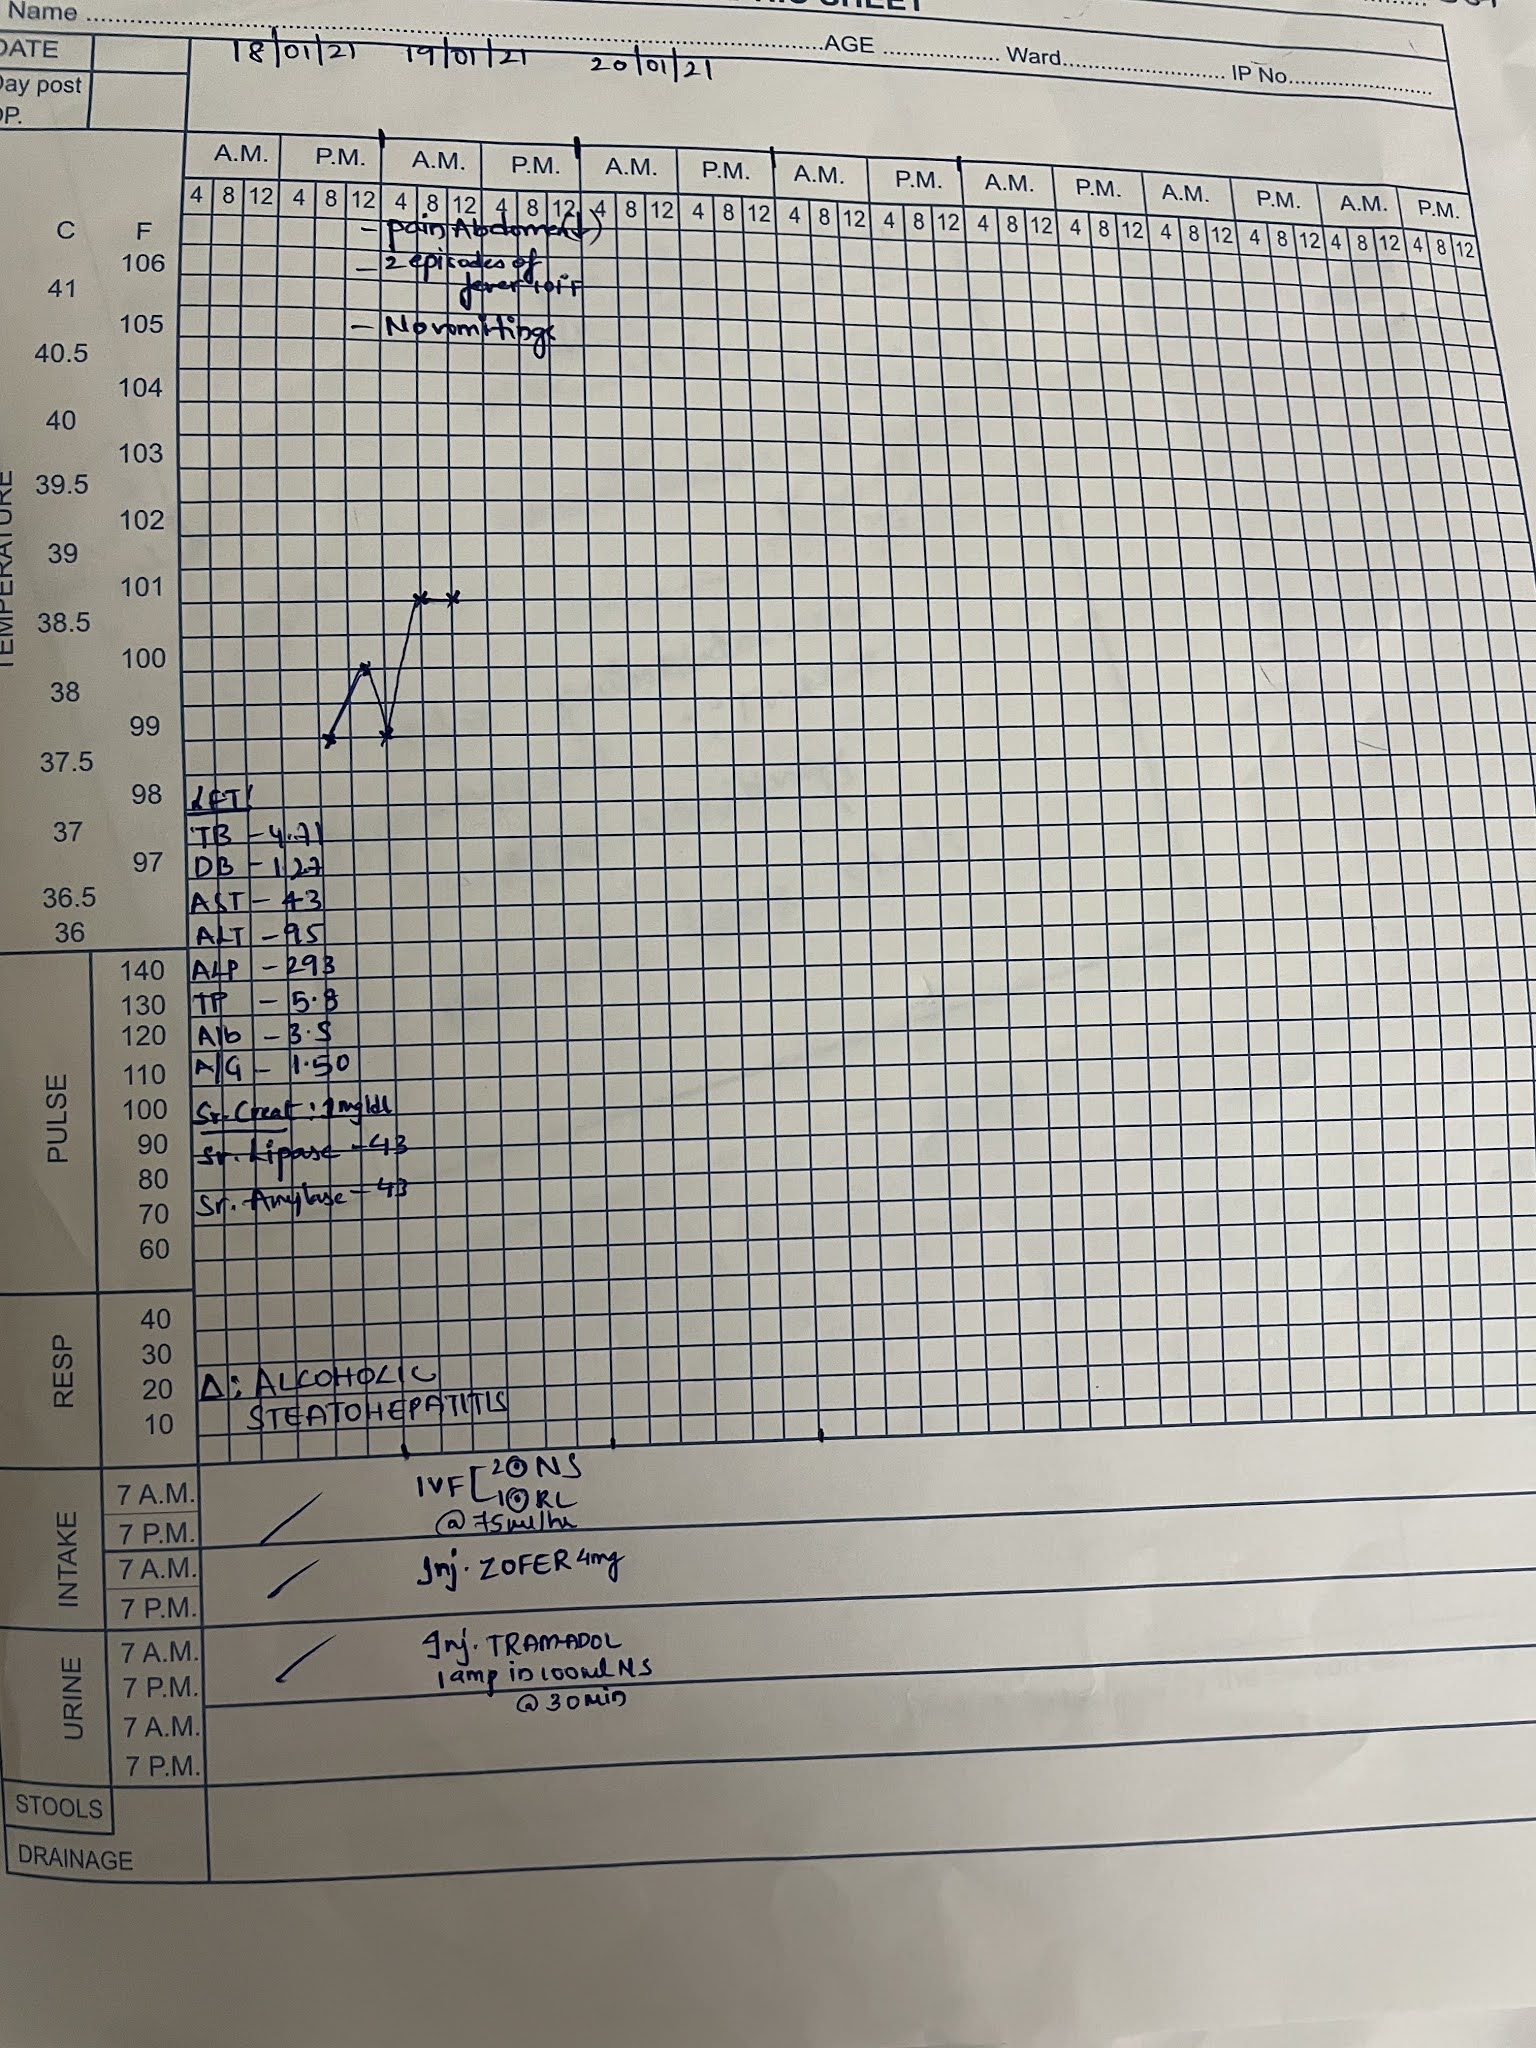 SHEET
Name ........ AGE ........ Ward........ IP No........
DATE 18/01/21 19/01/21 20/01/21
Day post
OP.
A.M. P.M. A.M. P.M. A.M. P.M. A.M. P.M. A.M. P.M. A.M. P.M. A.M. P.M.
4 8 12 4 8 12 4 8 12 4 8 12 4 8 12 4 8 12 4 8 12 4 8 12 4 8 12 4 8 12 4 8 12 4 8 12 4 8 12 4 8 12
C F
- Pain Abdomen(+)
106
- 2 episodes of
41
fever 101°F
105
- No vomitings
40.5
104
40
103
39.5
102
TEMPERATURE
39
101
38.5
100
38
99
37.5
98 LFT:
37 TB - 4.71
97 DB - 1.27
36.5 AST - 43
36 ALT - 95
140 ALP - 293
130 TP - 5.8
120 Alb - 3.5
110 A/G - 1.50
PULSE
100 Sr. Creat: 1mg/dl
90 Sr. Lipase - 43
80
70 Sr. Amylase - 43
60
40
30
RESP
20 Δ: ALCOHOLIC
10 STEATOHEPATITIS
7 A.M. IVF [ 2 O NS
1 O RL
7 P.M. @ 75ml/hr
INTAKE
7 A.M. Inj. ZOFER 4mg
7 P.M.
7 A.M. Inj. TRAMADOL
7 P.M. 1 amp in 100ml NS
@ 30min
URINE
7 A.M.
7 P.M.
STOOLS
DRAINAGE